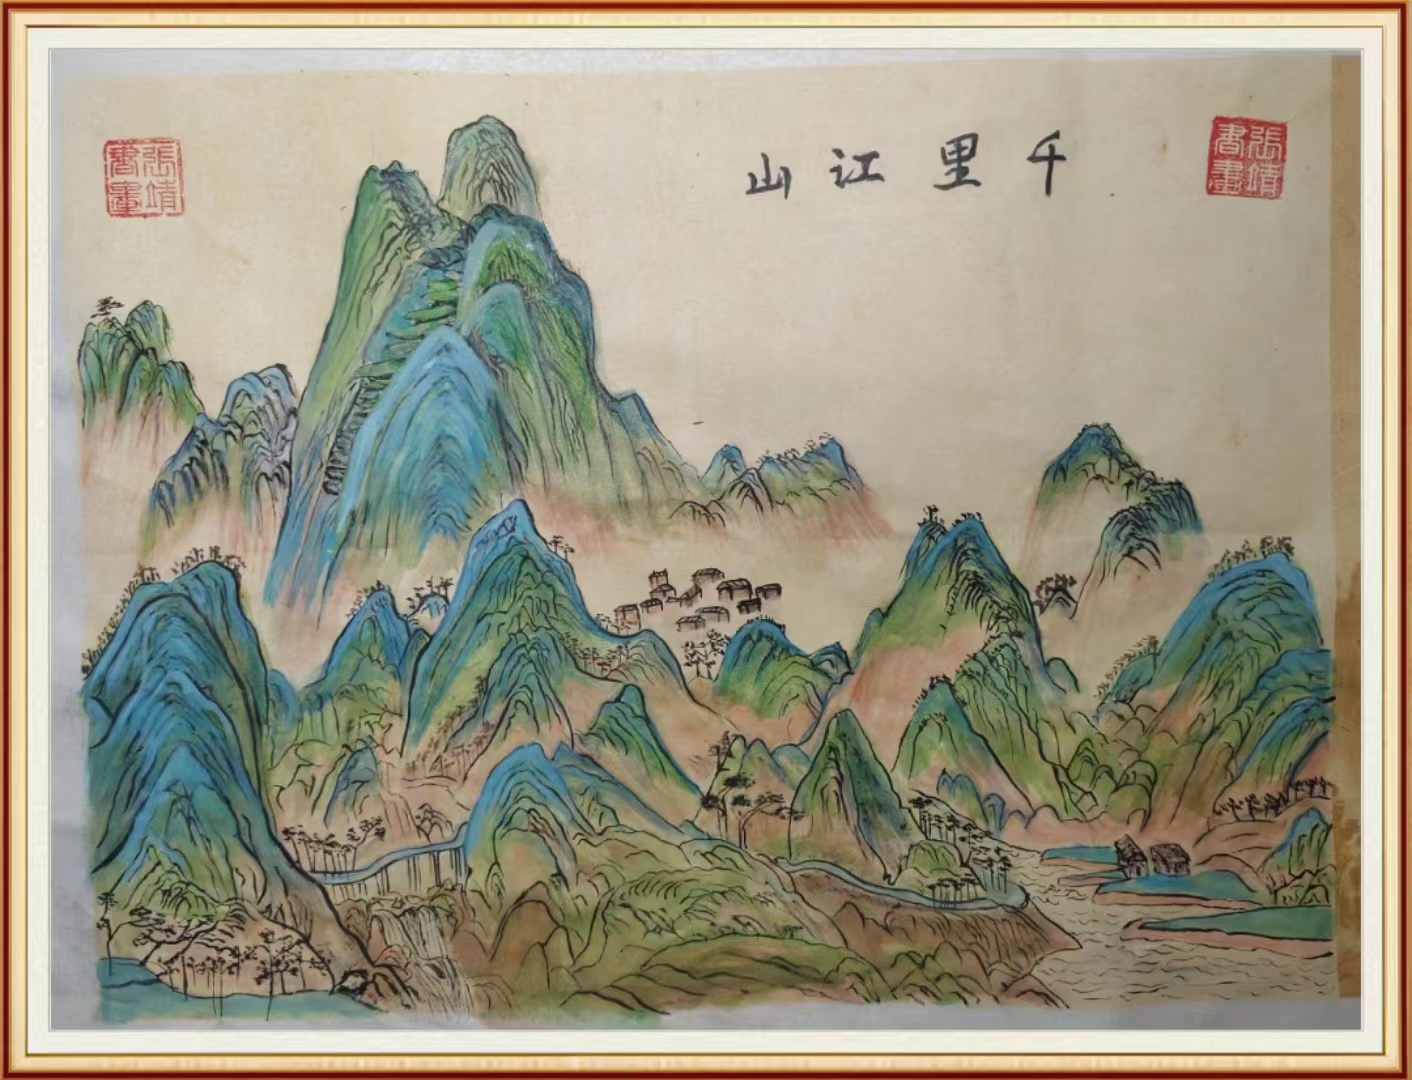 張靖書畫
千里江山
張靖書畫